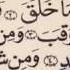 مَاخَلَقَ
وَقَبَ ۝ وَمِن
۝ وَمِن شَ